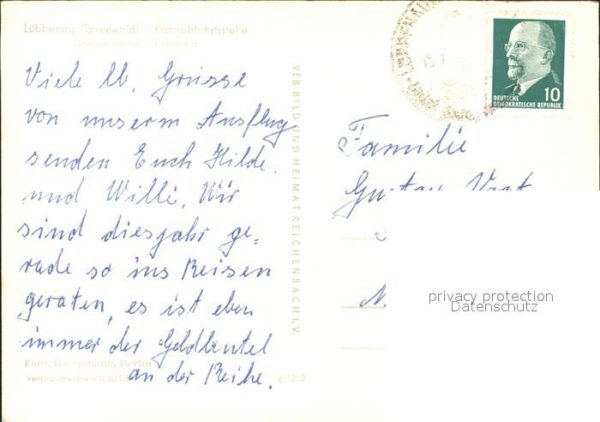 Lübbenau (Spreewald) - Kahnabfahrtsstelle
Viele lb. Grüsse
von unserm Ausflug
senden Euch Hilde
und Willi. Wir
sind diesjahr ge=
rade so ins Reisen
geraten, es ist eben
immer der Geldbeutel
an der Reihe.
Foto: Kampmann, Berlin
VEB BILD UND HEIMAT REICHENBACH I. V.
10
DEUTSCHE
DEMOKRATISCHE REPUBLIK
Familie
Gustav
privacy protection
Datenschutz